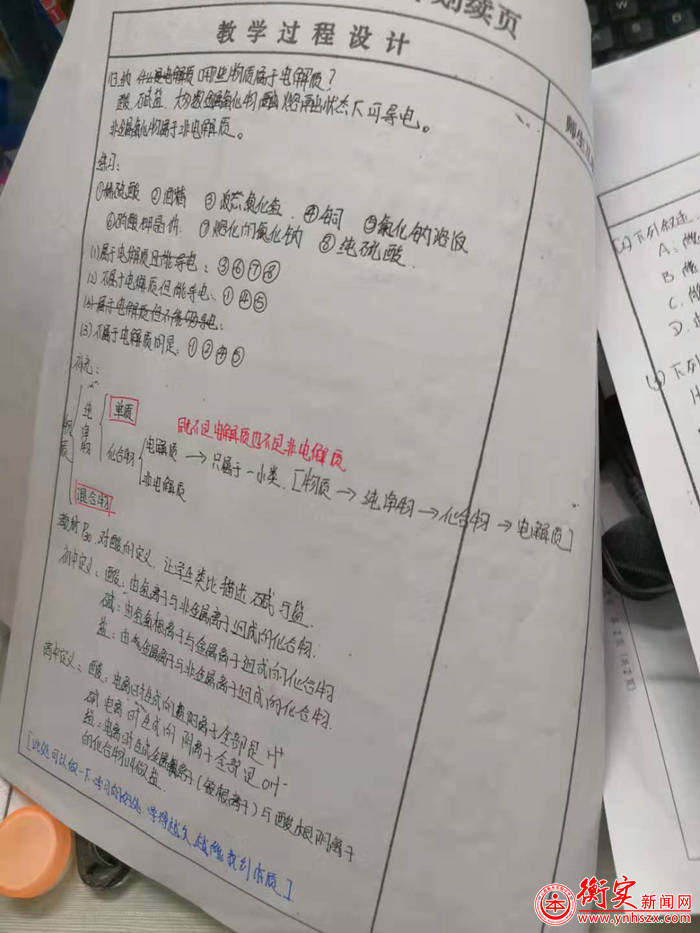 划续页
教学过程设计
归纳 什么是电解质 哪些物质属于电解质？
酸、碱、盐、大多数金属氧化物 融熔状态下可导电。
非金属氧化物属于非电解质。
练习：
①稀硫酸 ②酒精 ③液态氯化 ④铜 ⑤氯化钠溶液
⑥硝酸钾晶体 ⑦熔化的氯化钠 ⑧纯硫酸
(1)属于电解质且能导电：③⑥⑦⑧
(2)不属于电解质但能导电：①④⑤
(2)属于电解质但不能导电：
(3)不属于电解质的是：①②④⑤
补充：
物质 纯净物 单质
既不是电解质也不是非电解质
化合物 电解质 → 只属于一小类. [物质 → 纯净物 → 化合物 → 电解质]
非电解质
混合物
对酸的定义，让学生类比描述碱与盐
初中定义：酸：由氢离子与非金属离子组成的化合物.
碱：由氢氧根离子与金属离子组成的化合物
盐：由金属离子与非金属离子组成的化合物.
高中定义：酸：电离时生成的阳离子全部是H⁺
碱 电离时生成的阴离子全部是OH⁻
盐：电离时生成金属离子(铵根离子)与酸根阴离子
的化合物叫做盐.
[此处可以做一下学习的 学得越久越能 到本质]
师生互
(2)下列叙述
A.
B
C.
D.
( )下列
第2页(共2页)
衡实新闻网
www.ynhszx.com